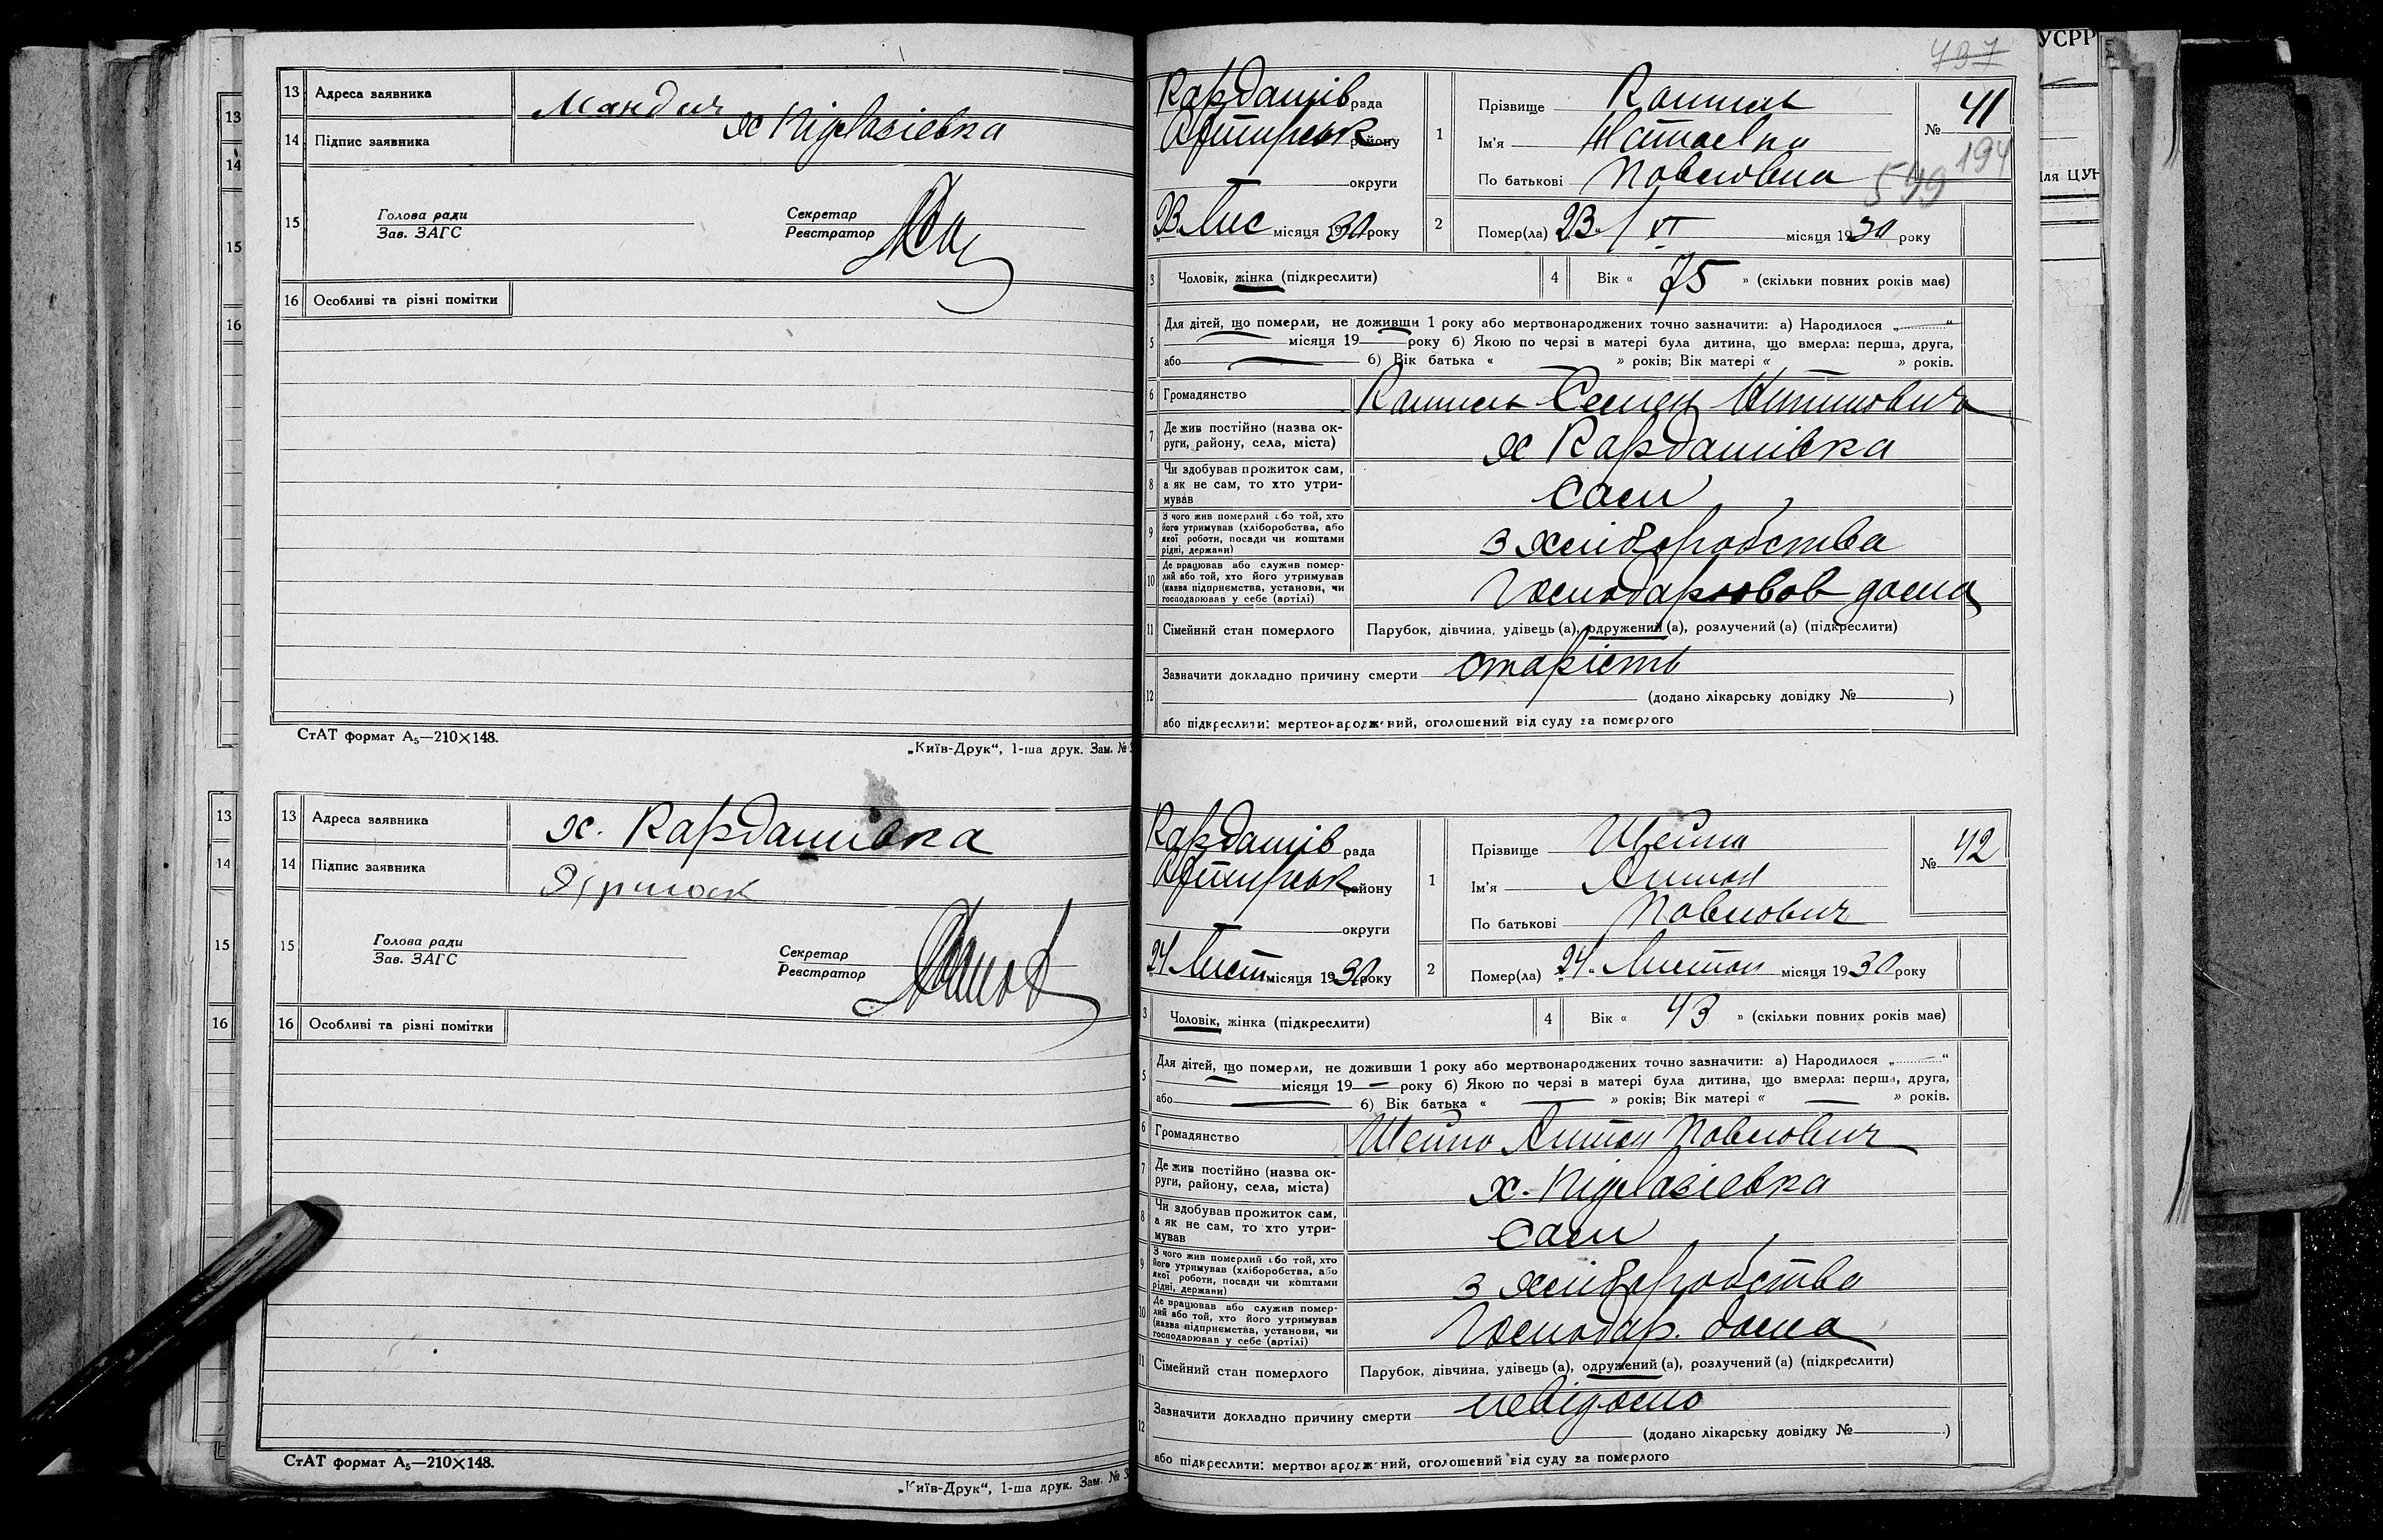 13 Адреса заявника
х Підлазіевка
14 Підпис заявника
15 Голова ради
Зав. ЗАГС
Секретар
Реєстратор
16 Особливі та різні помітки
СтАТ формат А₅—210×148.
„Київ-Друк“, 1-ша друк. Зам. №
13 Адреса заявника х. Кардашівка
14 Підпис заявника
15 Голова ради
Зав. ЗАГС
Секретар
Реєстратор
16 Особливі та різні помітки
СтАТ формат А₅—210×148.
„Київ-Друк“, 1-ша друк. Зам. №
13
14
15
16
13
14
15
16
УСРР
497
Кардашів рада
Охтирськ району
округи
23 Лис місяця 1930 року
1 Прізвище
Ім'я
По батькові Павловна
№ 41
194
599
2 Помер(ла) 23 / XI місяця 1930 року
3 Чоловік, жінка (підкреслити)
4 Вік « 75 » (скільки повних років має)
5 Для дітей, що померли, не доживши 1 року або мертвонароджених точно зазначити: а) Народилося „ “
місяця 19 року б) Якою по черзі в матері була дитина, що вмерла: перша, друга,
або б) Вік батька « » років; Вік матері « » років.
6 Громадянство Семен
7 Де жив постійно (назва округи, району, села, міста) х Кардашівка
8 Чи здобував прожиток сам, а як не сам, то хто утримував сам
9 З чого жив померлий або той, хто його утримував (хліборобства, або якої роботи, посади чи коштами рідні, держави) з хліборобства
10 Де працював або служив померлий або той, хто його утримував (назва підприємства, установи, чи господарював у себе (артілі) Господарював дома
11 Сімейний стан померлого Парубок, дівчина, удівець (а), одружений (а), розлучений (а) (підкреслити)
12 Зазначити докладно причину смерти старість
(додано лікарську довідку № )
або підкреслити: мертвонароджений, оголошений від суду за померлого
Кардашів рада
Охтирськ району
округи
24 Лист місяця 1930 року
1 Прізвище Шейко
Ім'я Антон
По батькові Павлович
№ 42
2 Помер(ла) 24 Листоп місяця 1930 року
3 Чоловік, жінка (підкреслити)
4 Вік « 43 » (скільки повних років має)
5 Для дітей, що померли, не доживши 1 року або мертвонароджених точно зазначити: а) Народилося „ “
місяця 19 року б) Якою по черзі в матері була дитина, що вмерла: перша, друга,
або б) Вік батька « » років; Вік матері « » років.
6 Громадянство Шейко Антон Павлович
7 Де жив постійно (назва округи, району, села, міста) х. Підлазіевка
8 Чи здобував прожиток сам, а як не сам, то хто утримував сам
9 З чого жив померлий або той, хто його утримував (хліборобства, або якої роботи, посади чи коштами рідні, держави) з хліборобства
10 Де працював або служив померлий або той, хто його утримував (назва підприємства, установи, чи господарював у себе (артілі) Господар. дома
11 Сімейний стан померлого Парубок, дівчина, удівець (а), одружений (а), розлучений (а) (підкреслити)
12 Зазначити докладно причину смерти невідомо
(додано лікарську довідку № )
або підкреслити: мертвонароджений, оголошений від суду за померлого